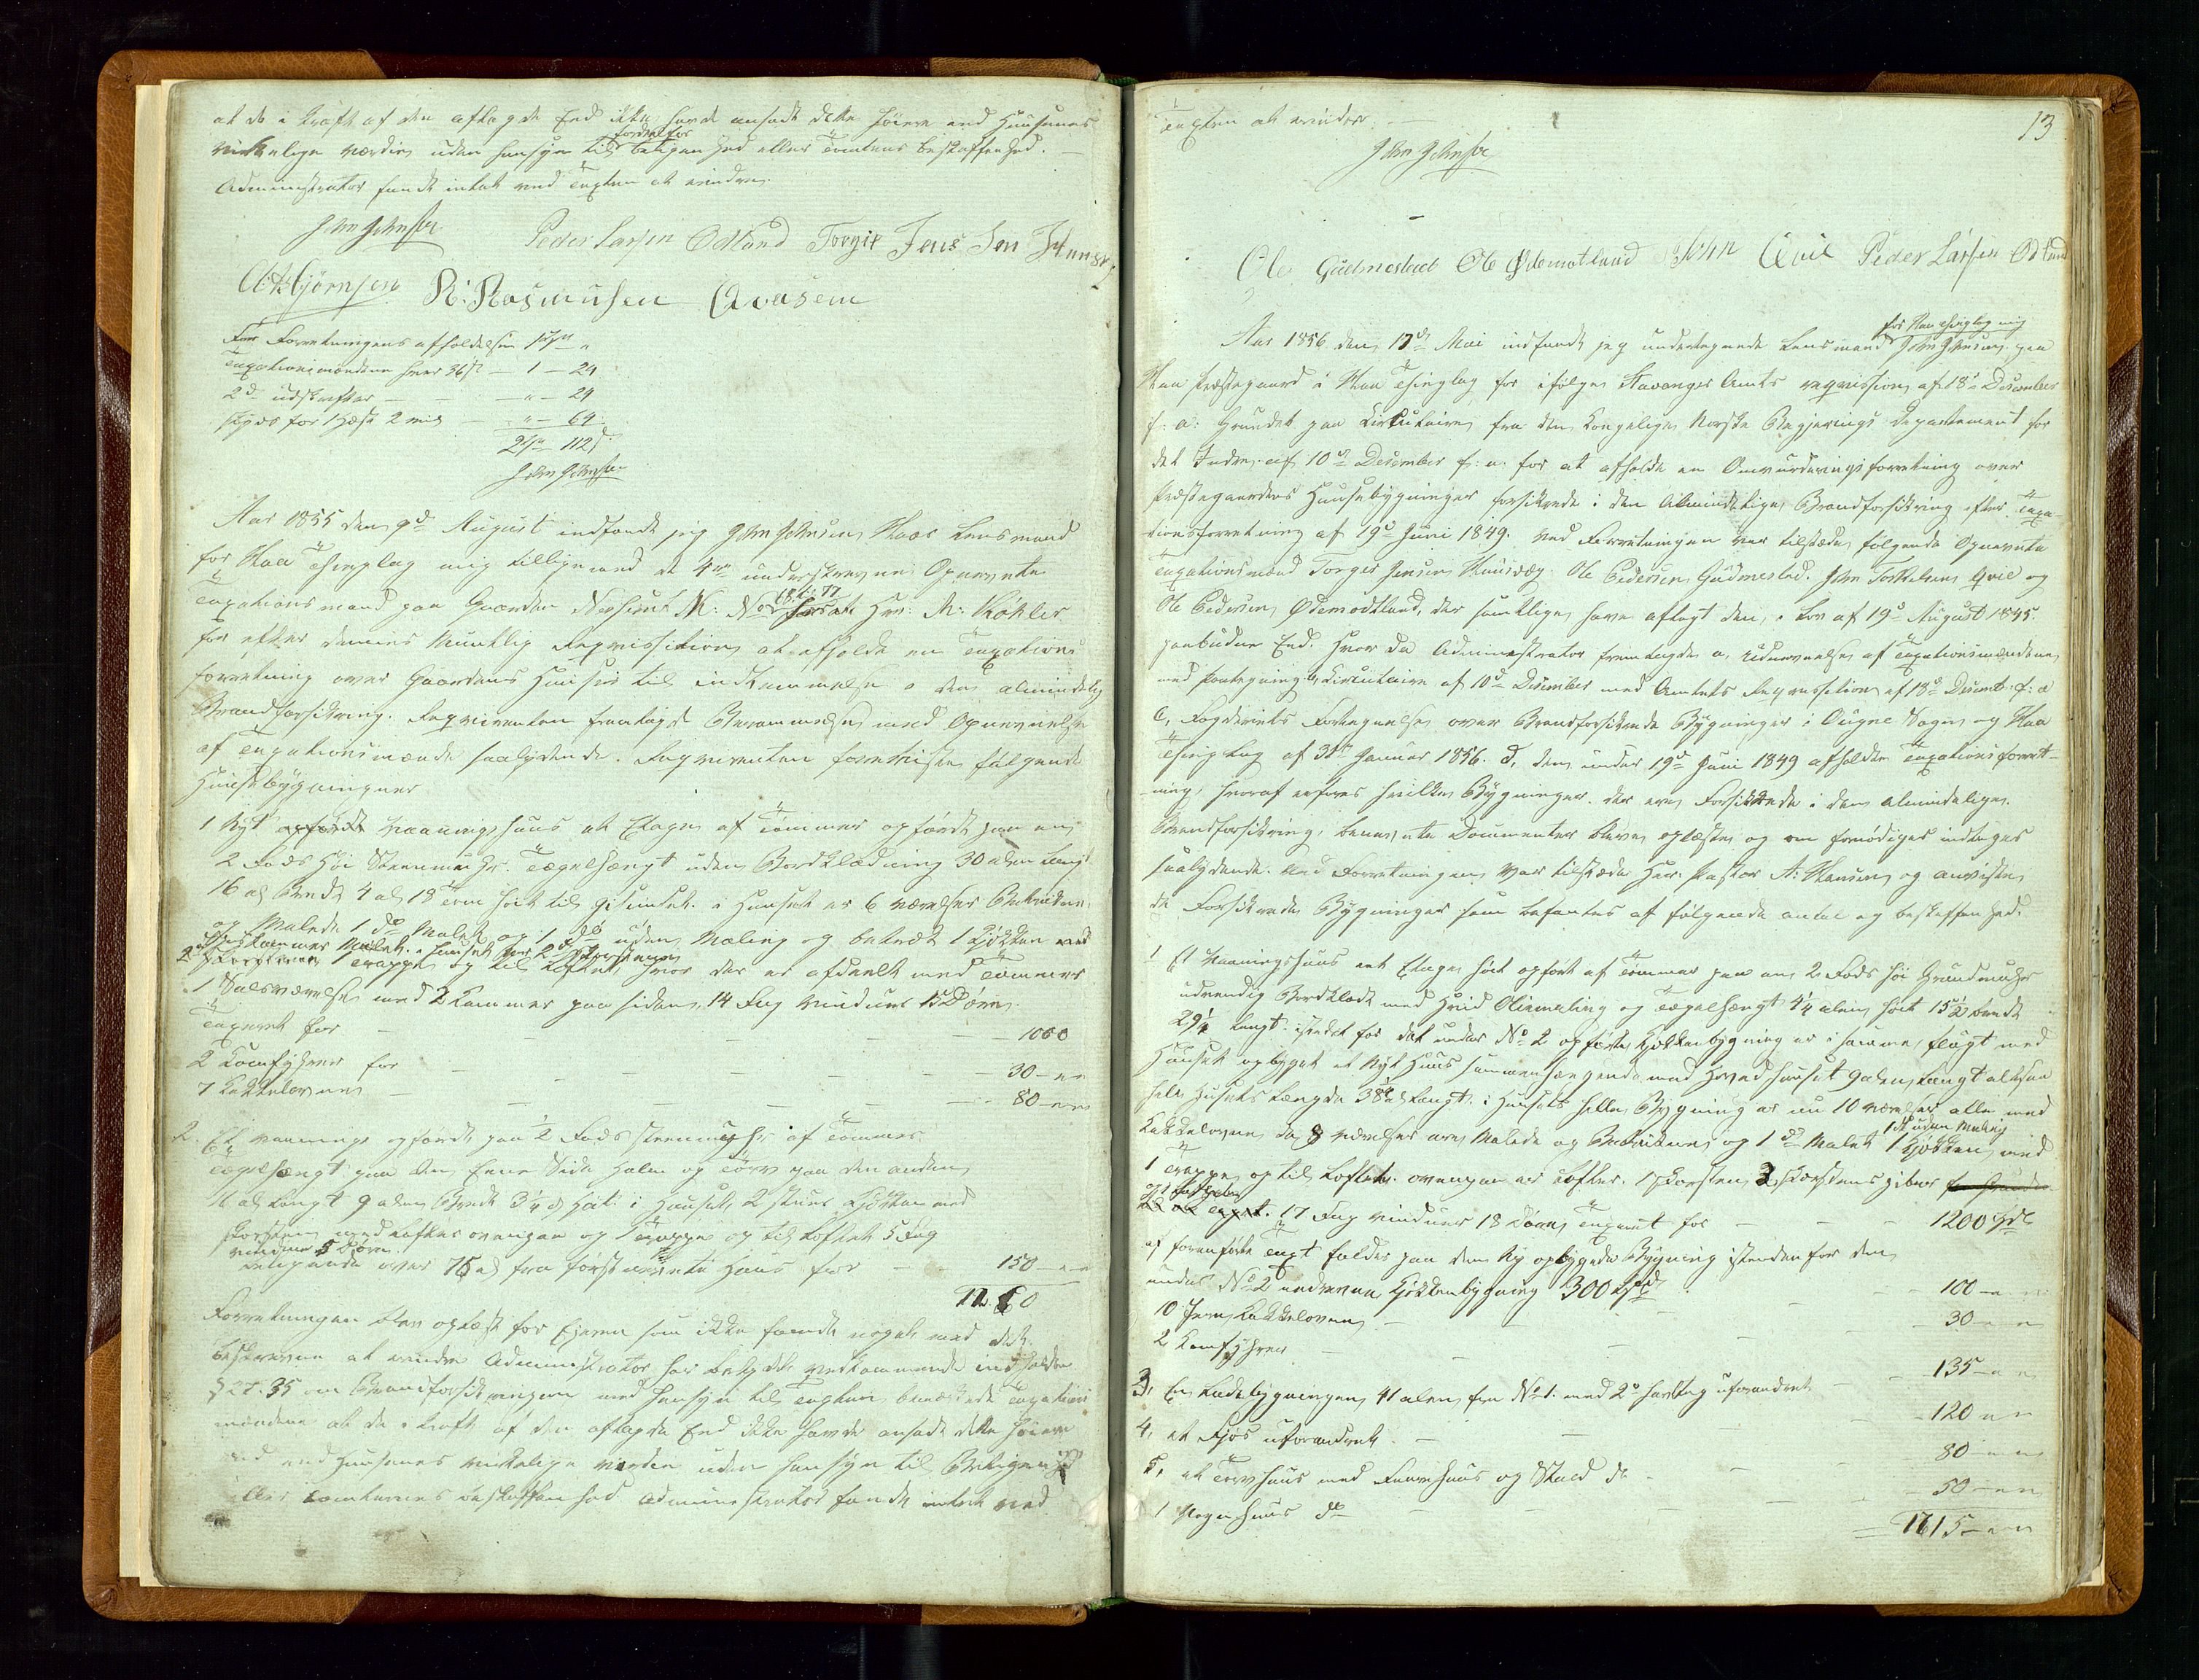 at de i Kraft af den aflagde Eed ikke havde ansadt dette høiere end Huusenes
virkelige værdie uden hensyn til fordeel for beligenhed eller Tomtens beskaffenhed. —
Administrator fandt intet ved Taxten at erindre
John Johnsen Peder Larsen Odland Torgir Jens Sen
A. Asbjørnsen R: Rasmusen Aarsem
For Forretningens afholdelse 1 Spd "
Taxationsmændene hver 36 s — 1 — 24
2de udskrifter — — " — 24
skyds for 1 Hæst 2 mil — " — 64
2 Spd 112 s
John Johnsen
Aar 1855 den 9de August indfandt jeg John Johnsen Haar Lensmand
for Haa Thinglag mig tilligemed de 4re underskrevne Opnevnte
Taxationsmænd paa Gaarden M: No Hr: M: Køhler
for efter dennes Muntlig Reqvisition at afholde en Taxations
forretning over Gaardens Huuse til indtemmelse i den almindelig
Brandforsikring. Reqvirenten fremlagde Berammelse med Opnevnelse
af Taxationsmænd saalydende. Reqvirenten foreviste følgende
Huusebygninger
1 Nyt opført Vaaningshuus et Etage af Tømmer opført paa en
2 Fods Høi Steenmuhr. Tægelhængt uden Bordklædning 30 alen langt
16 al Bredt 4 al 18 Tom høit til Gesimset. i Huuset er 6 værelser Betrukne
og Malede 1 do Malet og 1 do uden Maling og betræk 1 Kjøkken med
2 Trappe og til Loftet hvor der er afdeelt med Tømmer
1 Salsværelse med 2 Kammer paa siden 14 Fag vinduer 15 Døre
Taxeret for — — — — 1000
2 Komfyhrer for — — — — 30 — " "
7 Kakkelovne — — — — 80 — " "
2. Et vaanings opført paa ½ Fods steenmuhr af Tømmer
Tægelhængt paa den Eene Side Halm og Tørv paa den anden
16 al langt 9 alen Bredt 3¼ al høit i Huuset 2 stuer Kjøkken med
skorsteen med Lofter ovenpaa og 1 Trappe op til Loftet 5 Fag
vinduer 5 Døre
beligende over 75 al fra først nevnte Huus for — 150 — " "
1260
Forretningen blev oplæst for Ejeren som ikke fandt noget ved det
beskrevne at erindre Administrator har betydet vedkommende indholdet
§ 27. 35 om Brandforsikringen med hensyn til Taxten benægtede Taxations
mændene at de i Kraft af den aflagde Eed ikke havde ansadt dette høiere
end Huusenes virkelige værdie uden hensyn til Beligenhed
eller Tomternes beskaffenhed Administrator fandt intet ved
13
Taxten at erindre. —
John Johnsen
Ole Gudmestad Ole Ødemotland John Qvil Peder Larsen Odland
Aar 1856 den 17de Mai indfandt jeg undertegnede Lensmand for Haa Thinglag mig John Johnsen paa
Haa Præstegaard i Haa Thinglag for ifølge Stavanger Amts reqvisition af 18de December
f: a: Grundet paa Cirkulaire fra den Kongelige Norske Regjerings Departement for
det Indre af 10de December f: a. for at afholde en Omvurderingsforretning over
Præstegaardens Huusebygninger forsikrede i den Almindelige Brandforsikring efter Taxa-
tionsforretning af 19de Juni 1849. ved Forretningen var tilstæde følgende Opnevnte
Taxationsmænd Torger Jensen Ole Pedersen Gudmestad. John Torkelsen Qvil og
Ole Pedersen Ødemodtland, der samtlige have aflagt den i Lov af 19de August 1845.
paabudne Eed. hvor da Administrator fremlagde a, Udnevnelse af Taxationsmændene
med paategning b, Cirkulaire af 10de December med Amtets Reqvisition af 18de Decemb. f: a
c, Fogderiets Fortegnelse over Brandforsikrede Bygninger i Ougne Sogn og Haa
Thinglag af 31te Januar 1856. d, den under 19de Juni 1849 afholdte Taxationsforret-
ning, hvoraf erfares hvilke Bygninger der ere Forsikrede i den Almindelige
Brandforsikring, benevnte Documenter bleve oplæste og om fornødiges indtages
saalydende. Ved Forretningen var tilstæde Herr Pastor A: Hansen og anviste
de Forsikrede Bygninger som befantes af følgende antal og beskaffenhed.
1 Et Vaaningshuus eet Etage høit opført af Tømmer paa en 2 Fods høi Grundmuhr
udvendig Bordklædt med Hvid Oliemaling og Tægelhængt 4¼ alen høit 15½ bredt
29¼ langt. istedet for det under No 2 opførte Kjøkkenbygning er i samme flugt med
Huuset opbygget et Nyt Huus sammenhængende med Hovedhuuset 9 alen langt altsaa
hele Husets Længde 38¼ al langt. i Huusets hele Bygning er nu 10 værelser alle med
Kakkelovne da 8 værelser ere Malede og Betrukne og 1 do Malet 1 do uden Maling 1 Kjøkken med
1 Trappe op til Loftet. ovenpaa er Lofter. 1 Skorsten 2 Skorstenspiber
17 Fag vinduer 18 Døre Taxeret for — — 1200 Spd
af foranførte Taxt falder paa den Ny opbygede Bygning istedenfor den
under No 2 nedrevne Kjøkkenbygning 300 Spd
10 Jern Kakkelovne — — — — 100 — " "
2 Komfyhrer — — — 30 — " "
3, En Ladebygningen 41 alen fra No 1. med 2de uforandret — 135 — " "
4, et Fjøs uforandret — — — 120 " "
5, et Tørvhuus med Farehuus og Stald do — — 80 — " "
1 Vognhuus do — — — 50 — " "
= 1715 — " "